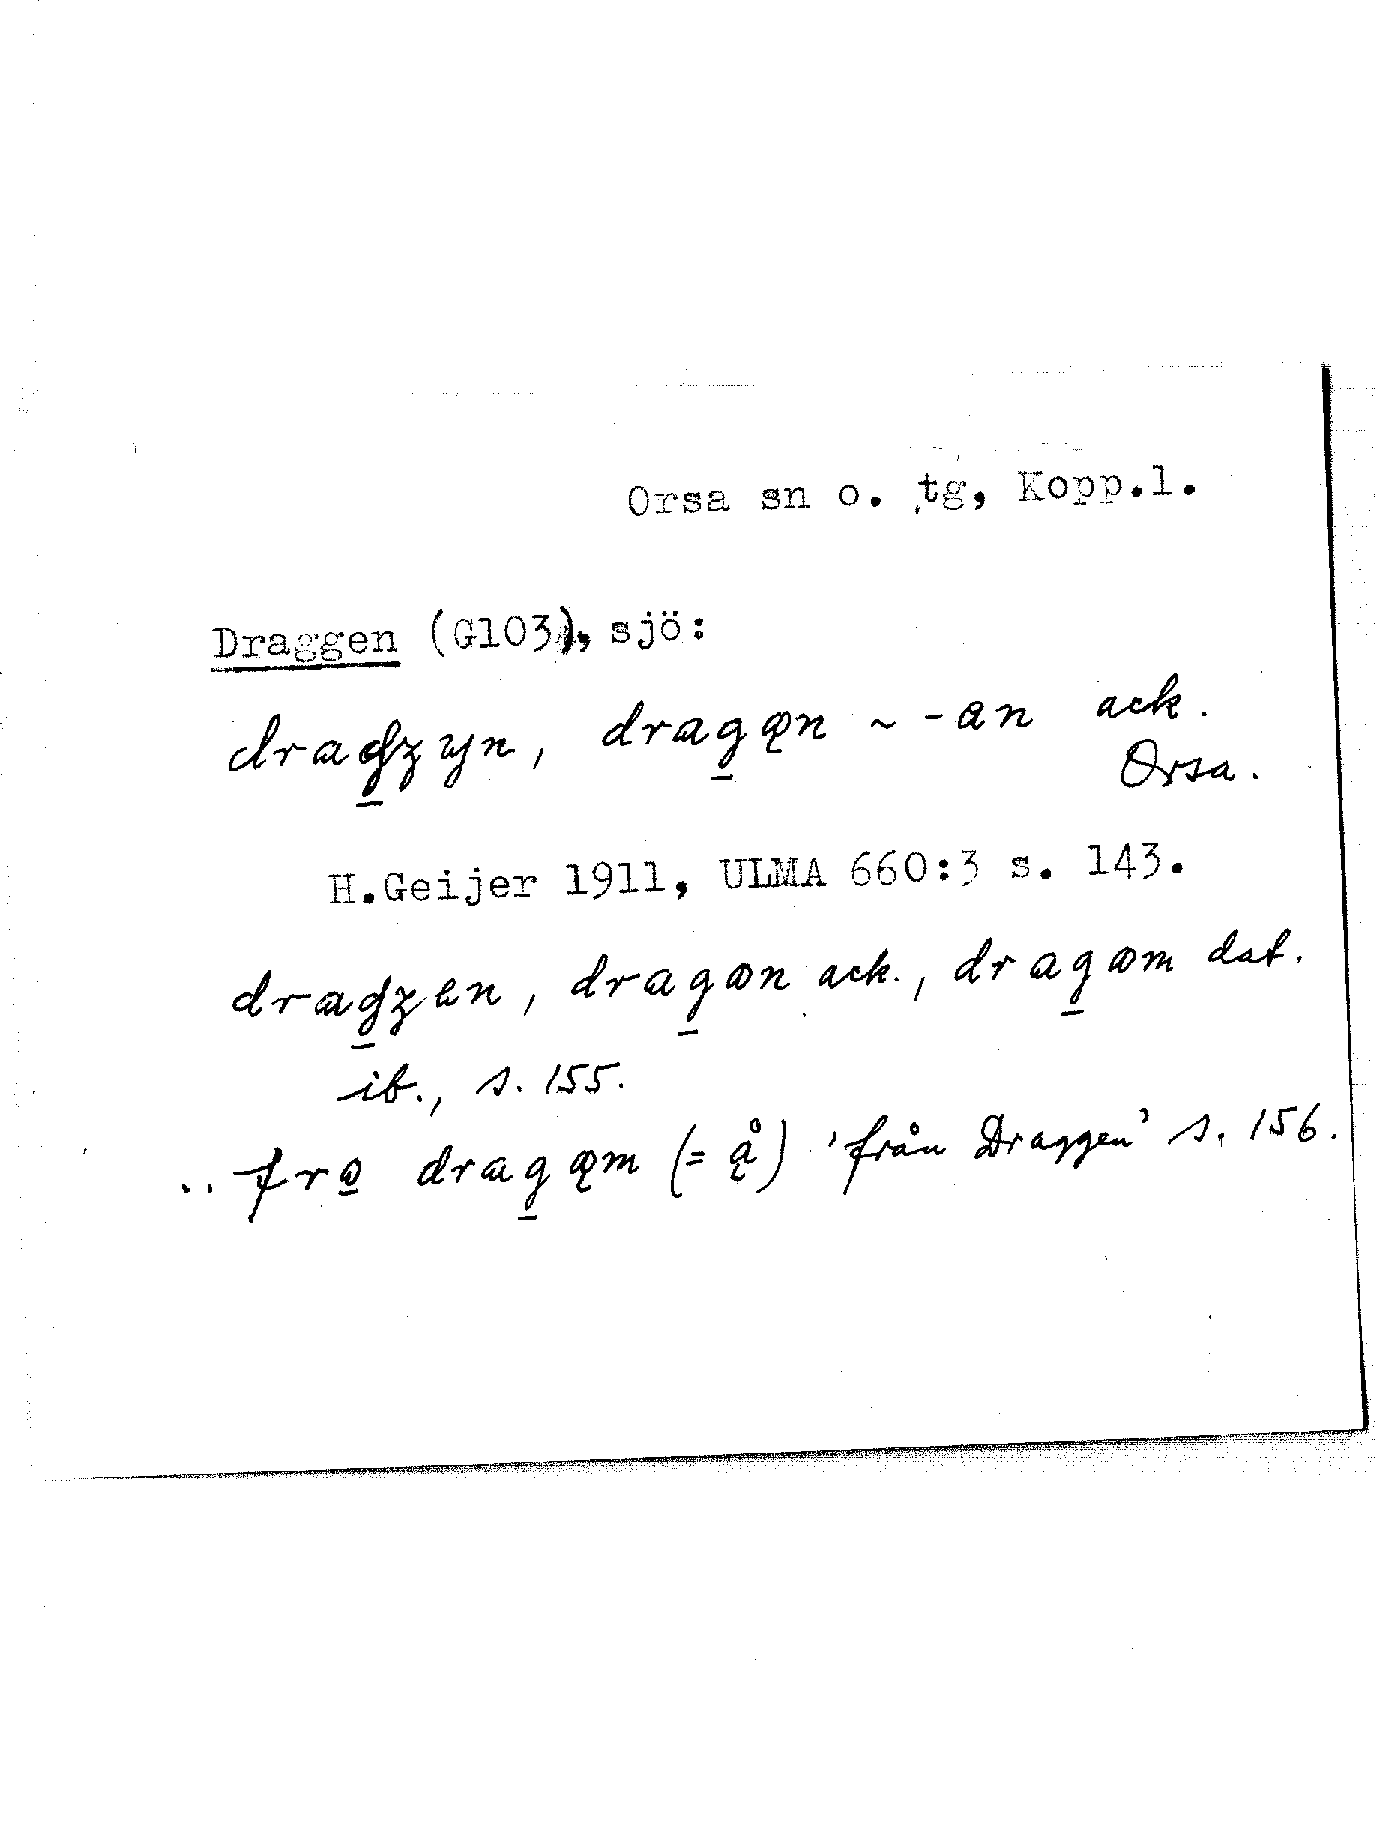 Orsa sn o. tg, Kopp.l.
Draggen (G103), sjö:
dragʒyn, dragęn ~ -an ack.
Orsa.
H.Geijer 1911, ULMA 660:3 s. 143.
dragʒen, dragən ack., dragəm dat.
ib., s. 155.
.. frə dragąm (= ą̊) 'från Draggen' s. 156.